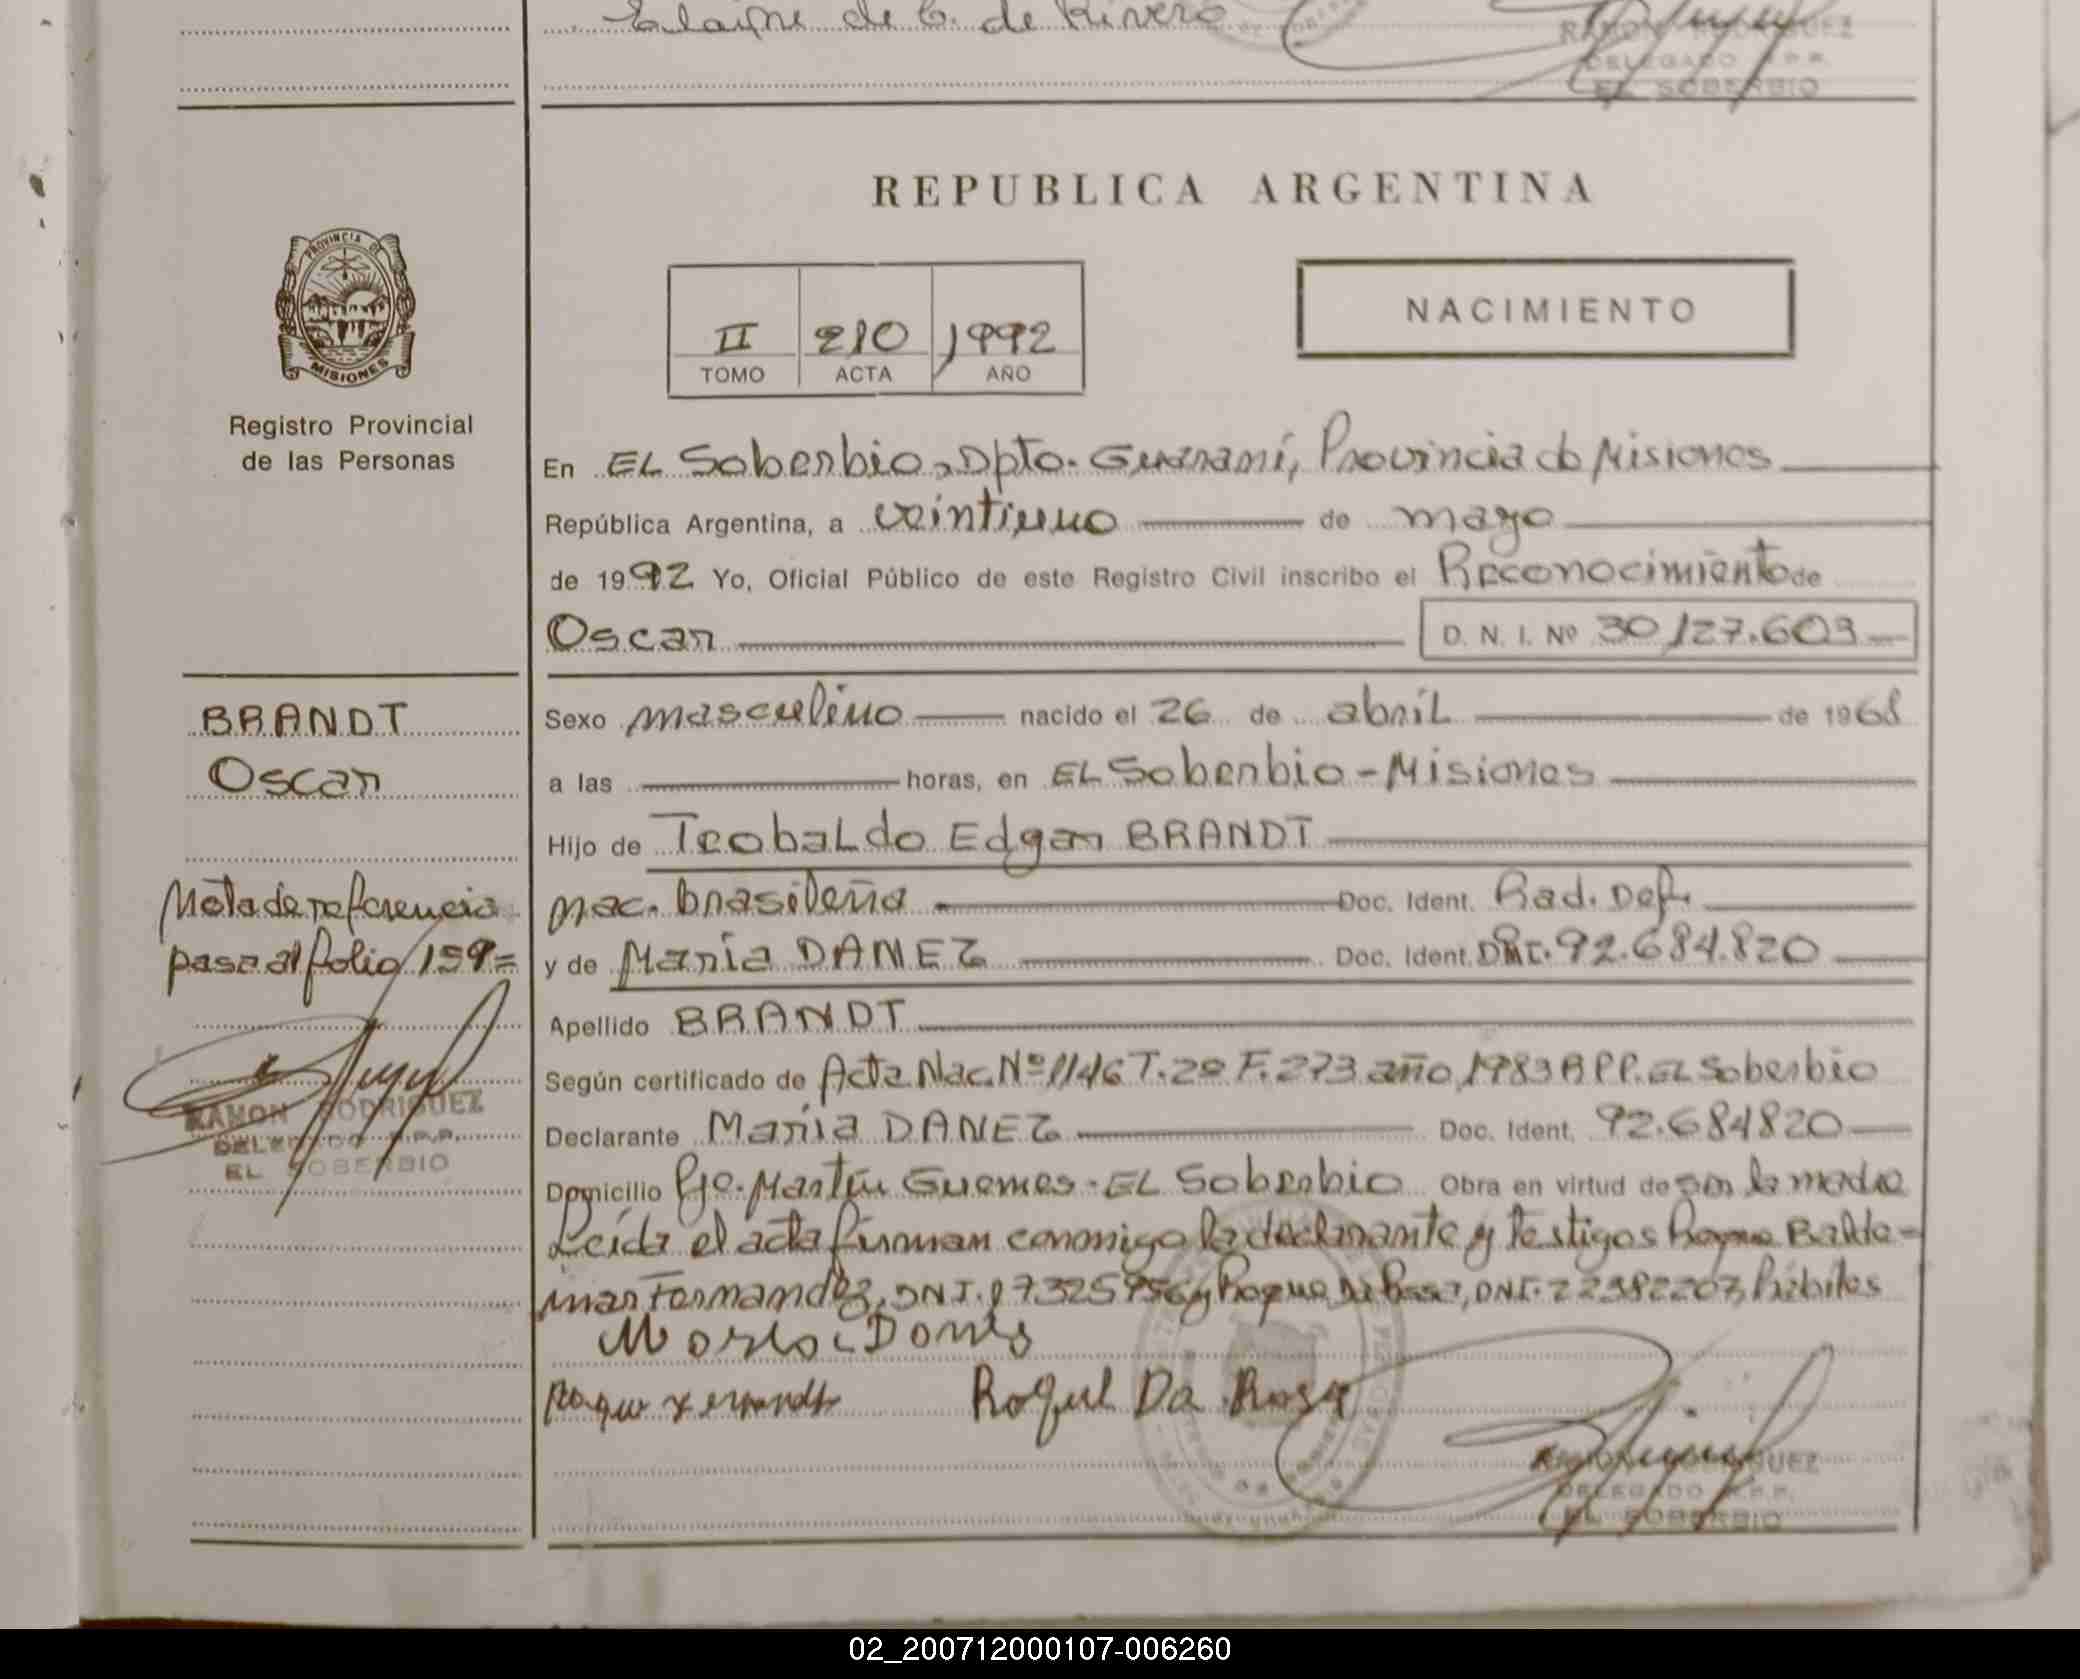 Elaine de C. de Rivero
RAMON RODRIGUEZ
DELEGADO R.P.P.
EL SOBERBIO
REPUBLICA ARGENTINA
PROVINCIA DE
MISIONES
Registro Provincial
de las Personas
II 210 1992
TOMO ACTA AÑO
NACIMIENTO
En EL Soberbio, Dpto. Guaraní, Provincia de Misiones
República Argentina, a veintiuno de mayo
de 1992 Yo, Oficial Público de este Registro Civil inscribo el Reconocimiento de
Oscar D. N. I. Nº 30.127.603
BRANDT
Oscar
Nota de referencia
pasa al folio 159=
RAMON RODRIGUEZ
DELEGADO R.P.P.
EL SOBERBIO
Sexo masculino nacido el 26 de abril de 1968
a las horas, en EL Soberbio - Misiones
Hijo de Teobaldo Edgar BRANDT
nac. brasileña Doc. Ident. Rad. Def.
y de María DANEZ Doc. Ident. DNI. 92.684.820
Apellido BRANDT
Según certificado de Acta Nac. Nº 1146 T. 2º F. 273 año 1983 RPP. EL Soberbio
Declarante María DANEZ Doc. Ident. 92.684820
Domicilio Pje. Martín Guemes - EL Soberbio Obra en virtud de ser la madre
Leída el acta firman conmigo la declarante y testigos Roque Balda-
mar Fernandez, DNI. 17325956 y Roque Da Rosa, DNI. 22382207, hábiles
Roque Da Rosa
RAMON RODRIGUEZ
DELEGADO R.P.P.
EL SOBERBIO
02_200712000107-006260